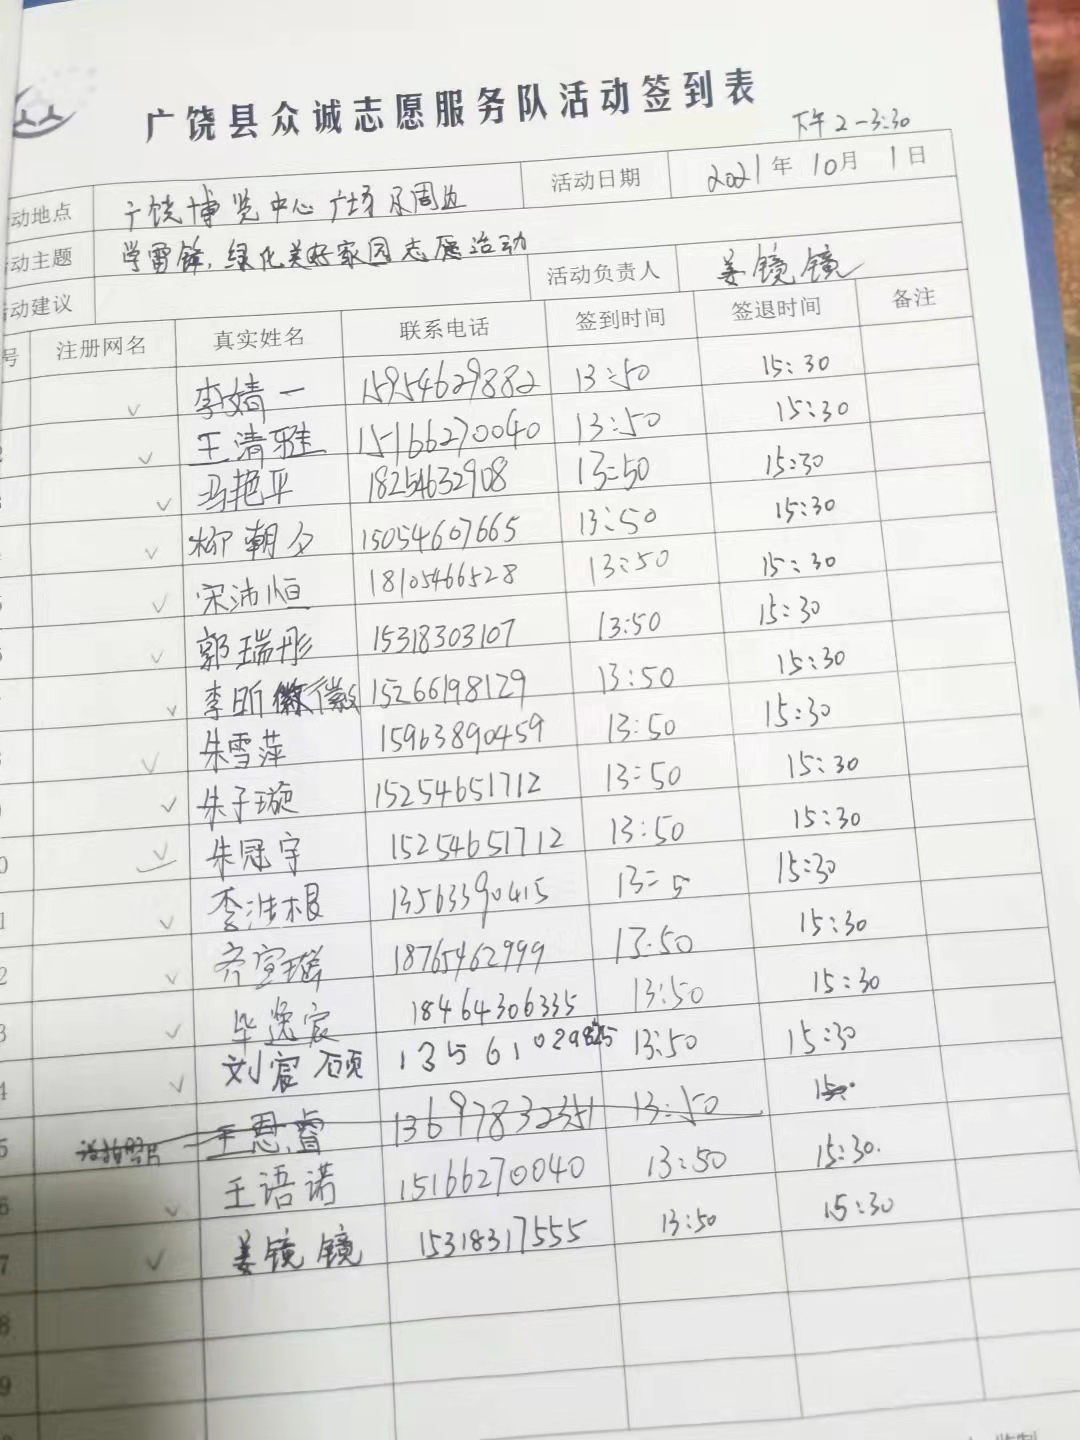 广饶县众诚志愿服务队活动签到表
下午2-3:30
动地点 广饶博览中心广场及周边 活动日期 2021年10月1日
动主题 学雷锋、绿化美好家园志愿活动
动建议 活动负责人 姜镜镜
号 注册网名 真实姓名 联系电话 签到时间 签退时间 备注
√ 李婧一 15954629882 13:50 15:30
2 √ 王清雅 15166270040 13:50 15:30
√ 马艳平 18254632908 13:50 15:30
√ 柳朝夕 15054607665 13:50 15:30
5 √ 宋沛恒 18105466528 13:50 15:30
6 √ 郭瑞彤 15318303107 13:50 15:30
√ 李昕徽 15266198129 13:50 15:30
√ 朱雪萍 15963890459 13:50 15:30
√ 朱子璇 15254651712 13:50 15:30
0 √ 朱冠宇 15254651712 13:50 15:30
1 √ 李浩根 13563390415 13:5 15:30
2 √ 齐宣瑶 18765462999 13:50 15:30
3 √ 毕逸宸 18464306335 13:50 15:30
4 √ 刘宸硕 13:50 15:30
5 王恩睿 13697832351 13:50
6 √ 王语诺 15166270040 13:50 15:30.
7 √ 姜镜镜 15318317555 13:50 15:30
8
9